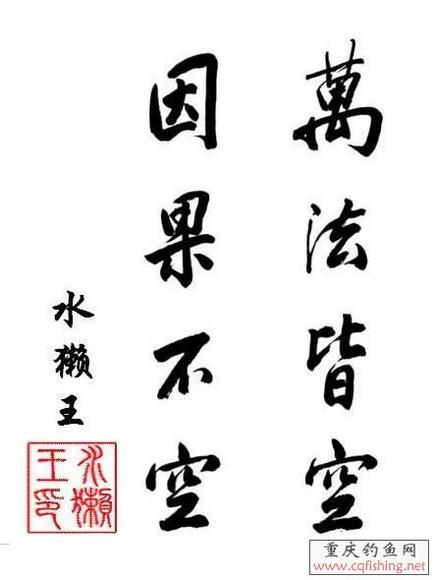 萬法皆空
因果不空
水獭王
水獺王印
重庆钓鱼网
www.cqfishing.net